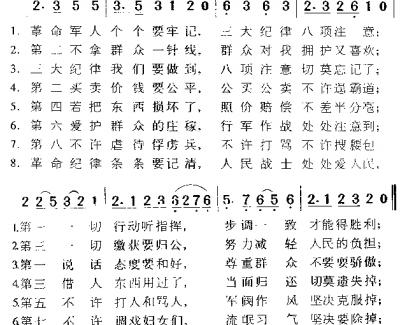 2· 3 5 5 3· 5 3 1 2 0 6 3 6 3 2· 3 2 6 1 0
1. 革命军人个个要牢记， 三大纪律八项注意；
2. 第二不拿群众一针线， 群众对我拥护又喜欢；
3. 三大纪律我们要做到， 八项注意切莫忘记了；
4. 第二买卖价钱要公平， 公买公卖不许逞霸道；
5. 第四若把东西损坏了， 照价赔偿不差半分毫；
6. 第六爱护群众的庄稼， 行军作战处处注意到；
7. 第八不许虐待俘虏兵， 不许打骂不许搜腰包
8. 革命纪律条条要记清， 人民战士处处爱人民，
2 2 5 3 2 1 2· 1 2 3 6 2 7 6 5· 7 6 5 5 2· 1 2 3 2 0
1.第一一切行动听指挥， 步调一致才能得胜利；
2.第三一切缴获要归公， 努力减轻人民的负担；
3.第一说话态度要和好， 尊重群众不要耍骄傲；
4.第三借人东西用过了， 当面归还切莫遗失掉；
5.第五不许打人和骂人， 军阀作风坚决克服掉；
6.第七不许调戏妇女们， 流氓习气坚决要除掉；